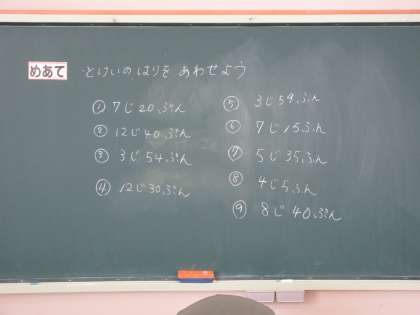 めあて とけいのはりを あわせよう
① 7じ20ぷん
② 12じ40ぷん
③ 3じ54ぷん
④ 12じ30ぷん
⑤ 3じ59ふん
⑥ 7じ15ふん
⑦ 5じ35ふん
⑧ 4じ5ふん
⑨ 8じ40ぷん